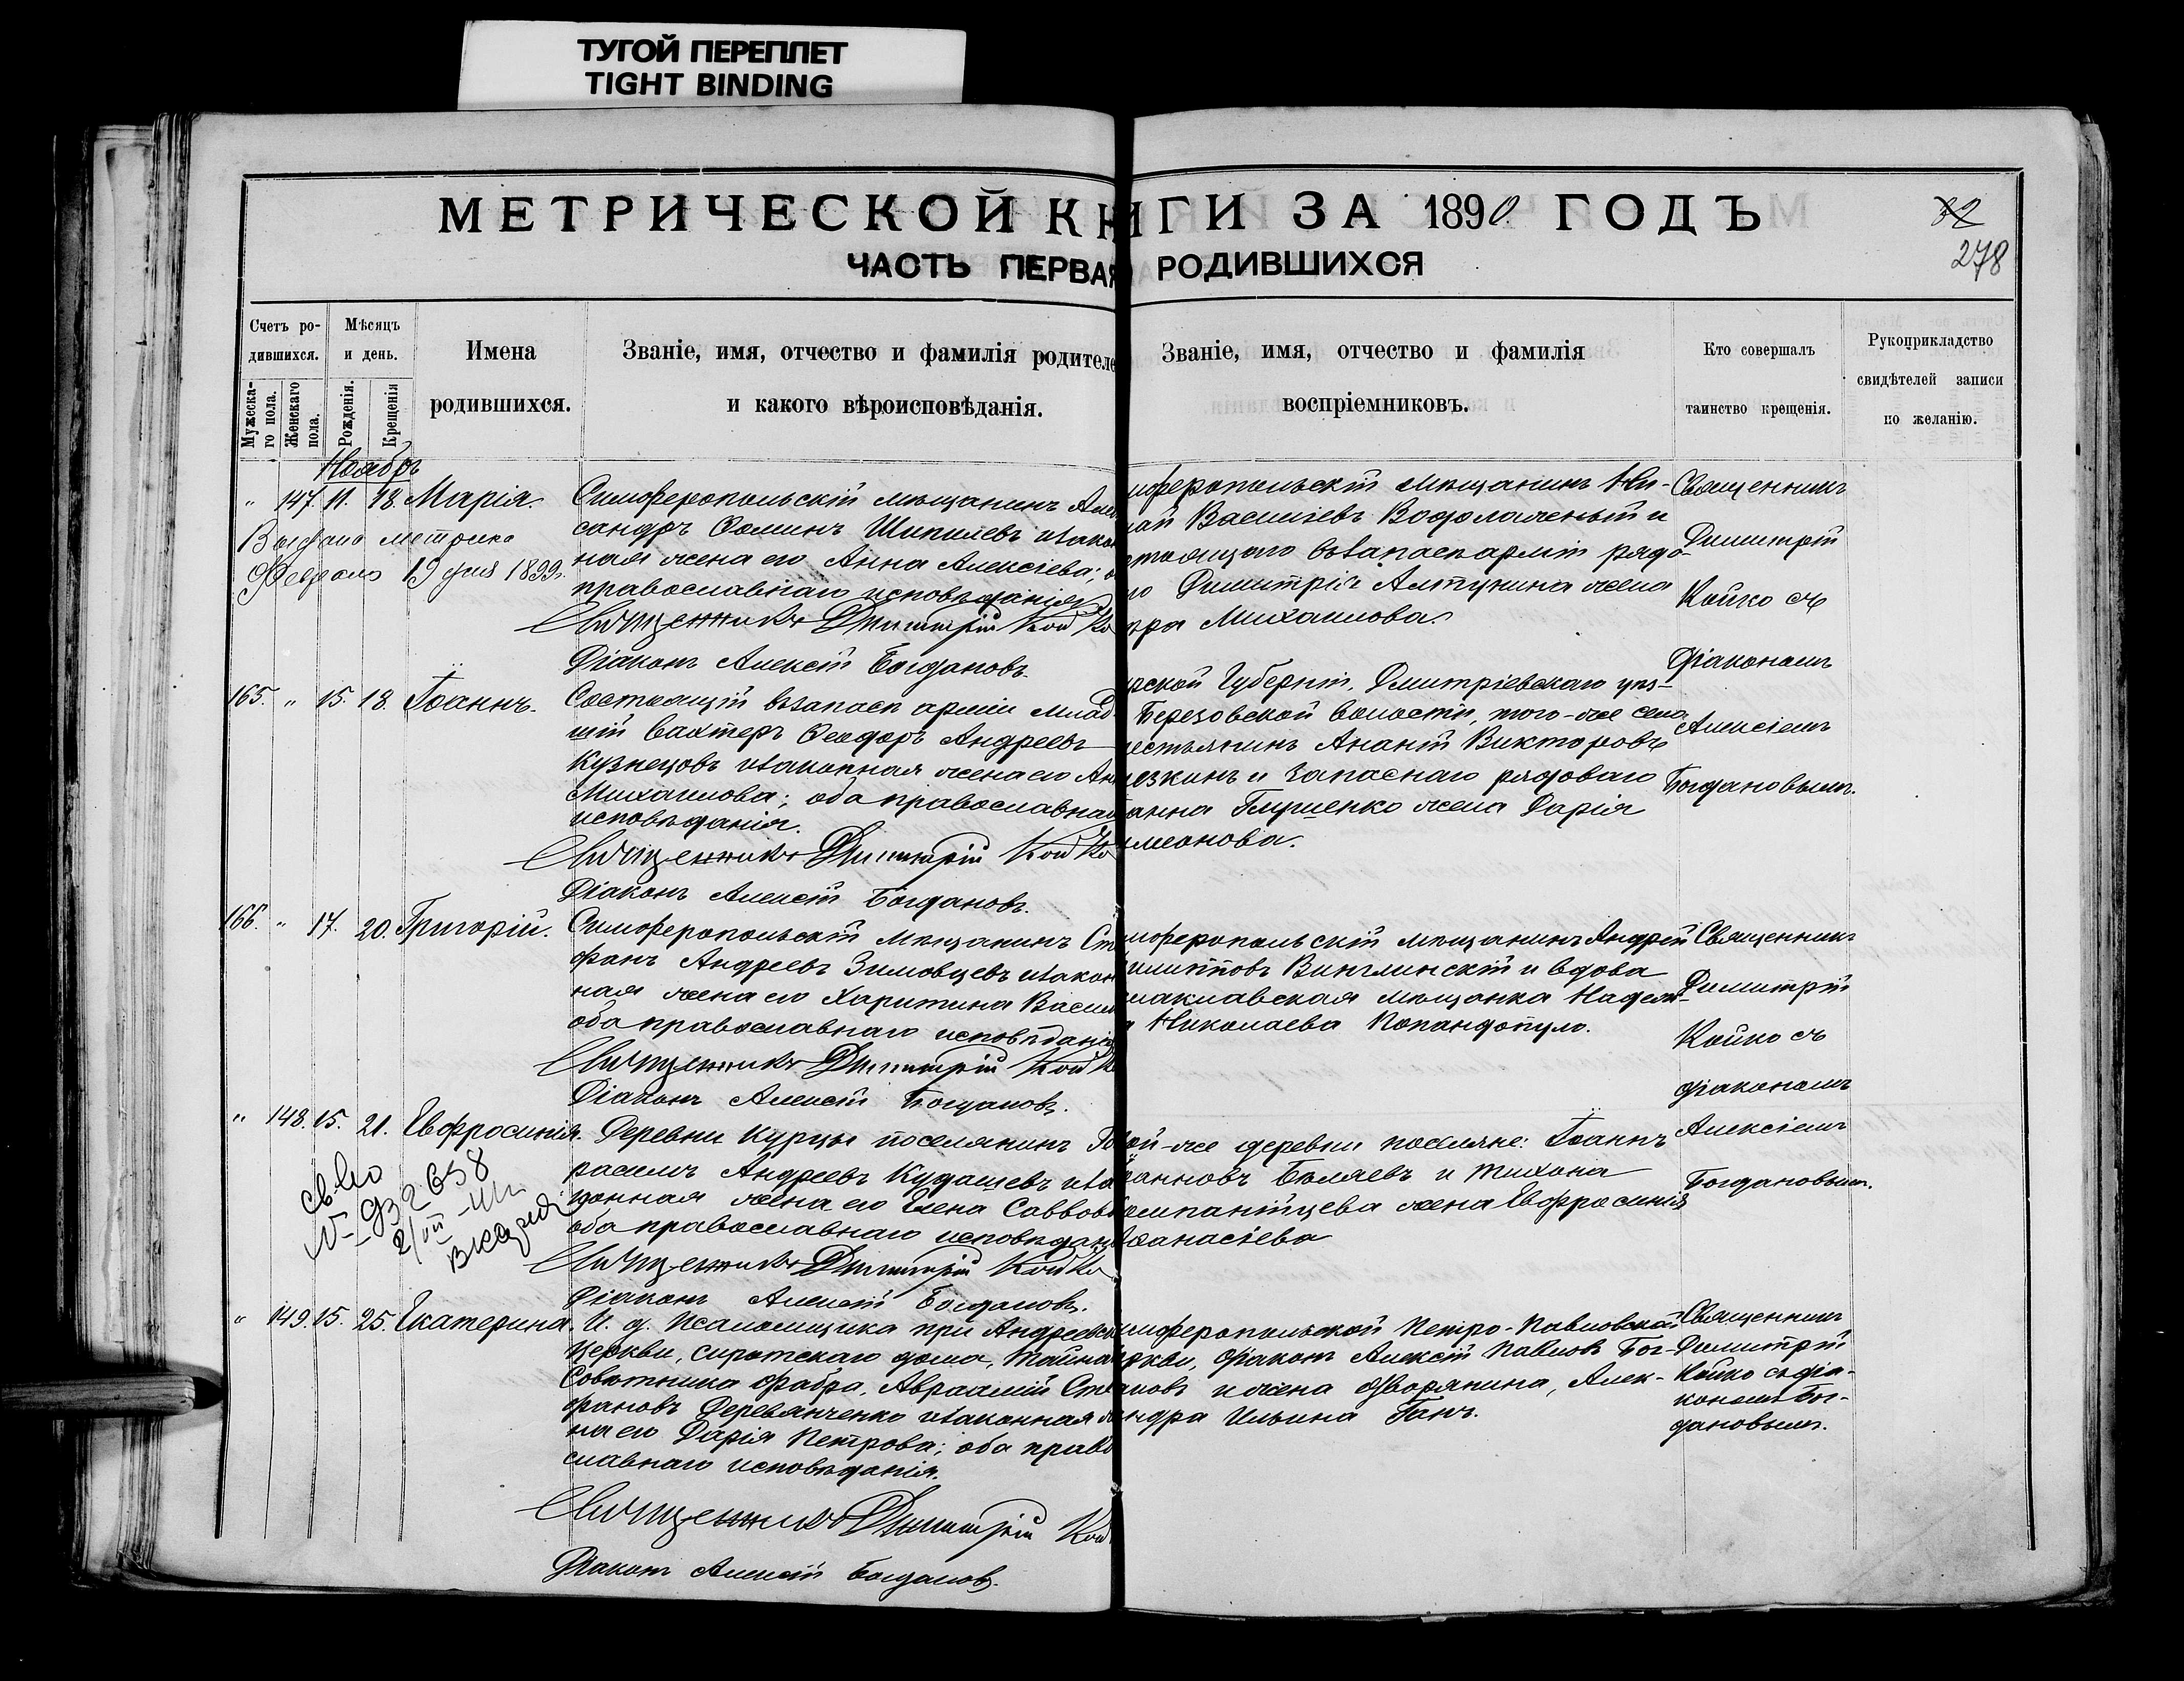 ТУГОЙ ПЕРЕПЛЕТ
TIGHT BINDING
МЕТРИЧЕСКОЙ КНИГИ ЗА 1890 ГОДЪ
ЧАСТЬ ПЕРВАЯ РОДИВШИХСЯ
32
278
Счетъ родившихся.
Мужеска-го пола.
Женскаго пола.
Мѣсяцъ и день.
Рожденія.
Крещенія
Имена родившихся.
Званіе, имя, отчество и фамилія родителе
и какого вѣроисповѣданія.
Званіе, имя, отчество и фамилія
воспріемниковъ.
Кто совершалъ
таинство крещенія.
Рукоприкладство
свидѣтелей записи
по желанію.
Ноябрь
" 147. 11. 18. Марія.
Выдана метрика
Февраля 19 дня 1899.
Симферопольскій мѣщанинъ Алек
сандръ Ѳоминъ Шипилевъ и закон
ная жена его Анна Алексіева; о
православнаго исповѣданія
Священникъ Димитрій Койко
Діаконъ Алексій Богдановъ.
имферопольскій мѣщанинъ Ни-
лай Васильевъ Водолаженый и
стоящаго въ запасѣ арміи рядо-
го Димитрія Алтунина жена
ра Михаилова.
Священникъ
Димитрій
Койко съ
Діакономъ
Алексіемъ
Богдановымъ.
165. " 15. 18. Іоаннъ.
Состоящій въ запасѣ арміи млад-
шій вахтеръ Ѳеодоръ Андреевъ
Кузнецовъ и законная жена его Ан
Михаилова; оба православна
исповѣданія.
Священникъ Димитрій Койко
Діаконъ Алексій Богдановъ.
рской Губерніи, Дмитріевскаго уѣз-
Березовской волости, того-же села
естьянинъ Ананій Викторовъ
езкинъ и запаснаго рядоваго
анна Глущенко жена Дарія
имеонова.
166. " 17. 20. Григорій.
Симферопольскій мѣщанинъ Сте
фанъ Андреевъ Зимовцевъ и закон
ная жена его Харитина Васил
оба православнаго исповѣданія
Священникъ Димитрій Койко
Діаконъ Алексій Богдановъ.
имферопольскій мѣщанинъ Андрей
илипповъ Винглинскій и вдова
лаклавская мѣщанка Надеж-
а Николаева Попандопуло.
Священникъ
Димитрій
Койко съ
діакономъ
Алексіемъ
Богдановымъ.
" 148. 15. 21. Евфросинія.
св-во
N-932658
Деревни Курцы поселянинъ Ге
расимъ Андреевъ Кудашевъ и за
конная жена его Елена Саввов
оба православнаго исповѣдан
Священникъ Димитрій Койко
Діаконъ Алексій Богдановъ.
ой-же деревни поселяне: Іоаннъ
оанновъ Бѣляевъ и Тихона
омпанійцева жена Евфросинія
ѳанасіева
" 149. 15. 25. Екатерина.
И. д. Псаломщика при Андреевск
церкви, сиротскаго дома, Тайна
Совѣтника Фабра, Авраамій Сте
фановъ Деревянченко и законная ж
на его Дарія Петрова; оба право
славнаго исповѣданія.
Священникъ Димитрій Кой
Діаконъ Алексій Богдановъ.
имферопольской Петро-Павловской
ркви, діаконъ Алексій Павловъ Бог-
ановъ и жена дворянина, Алек-
ндра Ильина Ганъ.
Священникъ
Димитрій
Койко съ діа-
кономъ Бог-
дановымъ.